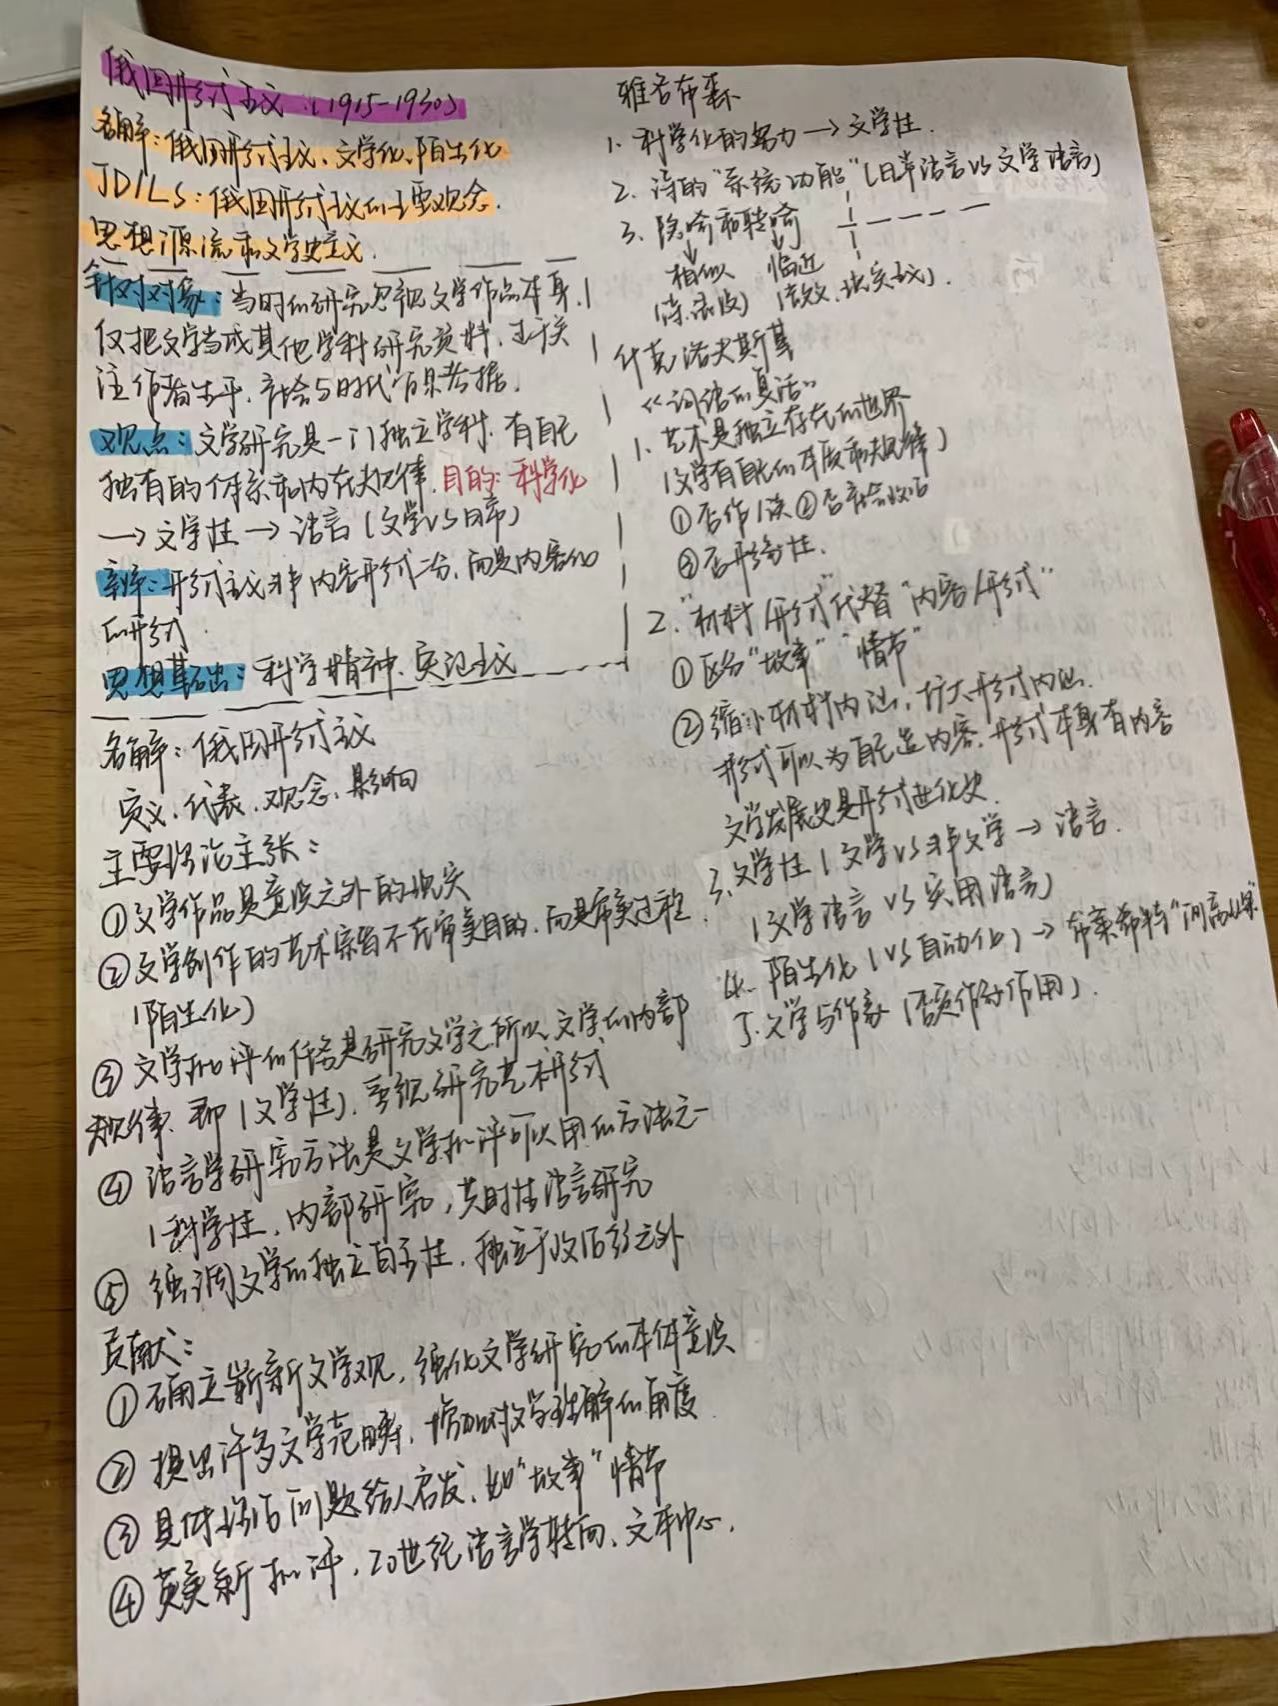 俄国形式主义(1915-1930)
名解:俄国形式主义、文学化、陌生化
JD/LS:俄国形式主义的主要观念、
思想源流和文学史意义.
针对对象:当时的研究忽视文学作品本身,
仅把文学当成其他学科研究资料,过于关
注作者生平、社会与时代背景考据.
观点:文学研究是一门独立学科,有自己
独有的体系和内在规律.目的:科学化
→文学性→语言(文学vs日常)
辨:形式主义非内容形式二分,而是内容化
的形式.
思想基础:科学精神、实证主义
名解:俄国形式主义
定义、代表、观念、影响
主要理论主张:
①文学作品是意识之外的现实
②文学创作的艺术宗旨不在审美目的,而是审美过程.
(陌生化)
③文学批评的任务是研究文学之所以文学的内部
规律.即(文学性),重视研究艺术形式
④语言学研究方法是文学批评可以用的方法之一
(科学性,内部研究,共时性语言研究
⑤强调文学的独立自主性,独立于政治等之外
贡献:
①确立崭新文学观,强化文学研究的本体意识
②提出许多文学范畴,增加对文学理解的角度
③具体理论问题给人启发,如"故事"情节
④英美新批评,20世纪语言学转向、文本中心.
雅各布森
1.科学化的努力→文学性.
2.诗的"系统功能"(日常语言vs文学语言)
3.隐喻和转喻
相似 临近
(浪漫派) (散文,现实主义).
什克洛夫斯基
《词语的复活》
1.艺术是独立存在的世界
(文学有自己的本质和规律)
①否作/读②否社会政治
③否形象性.
2."材料/形式"代替"内容/形式"
①区分"故事""情节"
②缩小材料内涵,扩大形式内涵.
形式可以为自己造内容,形式本身有内容
文学发展史是形式进化史.
3.文学性(文学vs非文学→语言.
(文学语言vs实用语言)
4.陌生化(vs自动化)→布莱希特"间离效果"
5.文学与作家(否定作家作用).